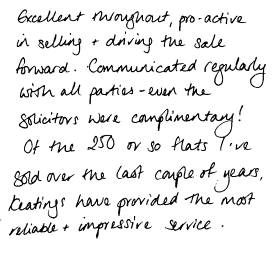 Excellent throughout, pro-active
in selling + driving the sale
forward. Communicated regularly
with all parties - even the
solicitors were complimentary!
Of the 250 or so flats I've
sold over the last couple of years,
Keatings have provided the most
reliable + impressive service.